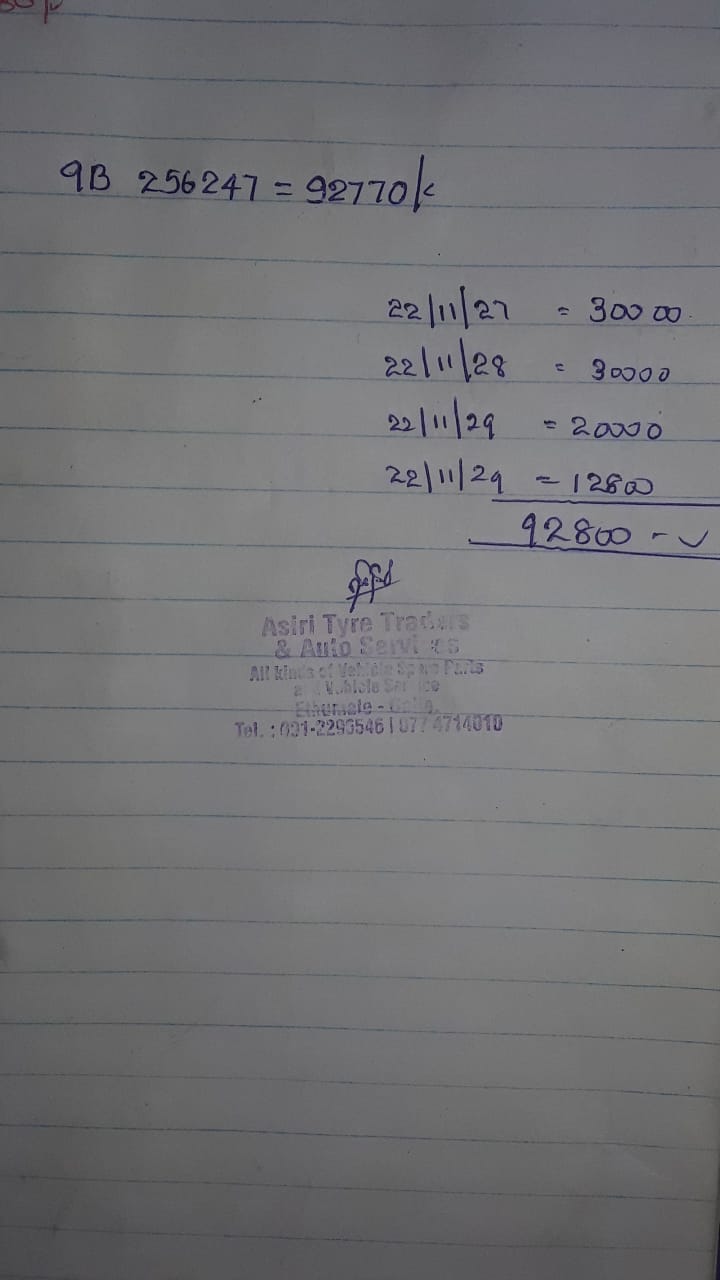 9B 256247 = 92770/=
22/11/27 = 30000.
22/11/28 = 30000
22/11/29 = 20000
22/11/29 = 12800
92800 - ✓
Asiri Tyre Traders
& Auto Services
All kinds of Vehicle Spare Parts
and Vehicle Service
Ethumale - Galle.
Tel. : 091-2290546 | 077 4714010